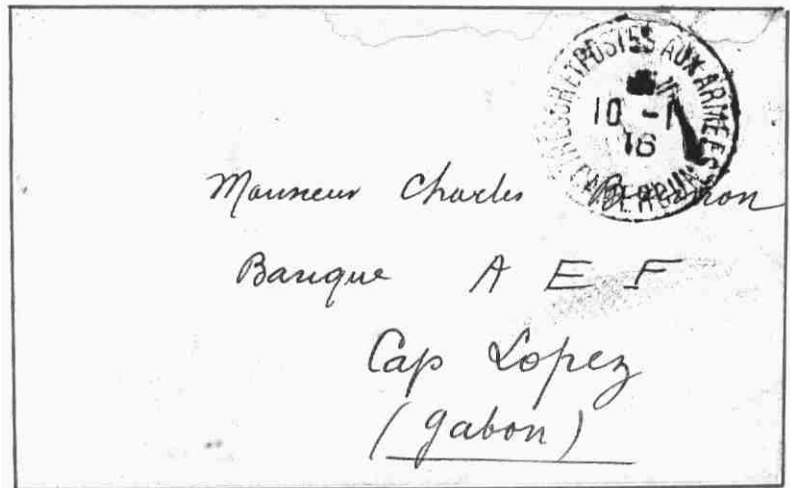 TRESOR ET POSTES AUX ARMEES
10 - 1
16
Monsieur Charles
Banque A E F
Cap Lopez
(Gabon)